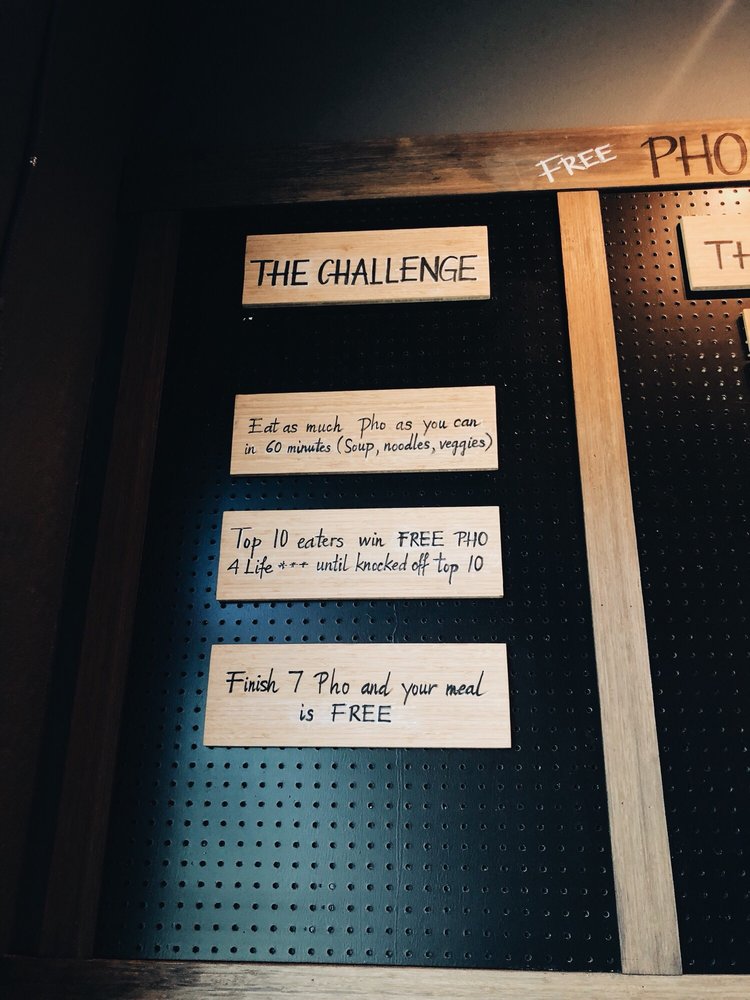 FREE PHO
THE CHALLENGE
Eat as much Pho as you can
in 60 minutes (Soup, noodles, veggies)
Top 10 eaters win FREE PHO
4 Life *** until knocked off top 10
Finish 7 Pho and your meal
is FREE